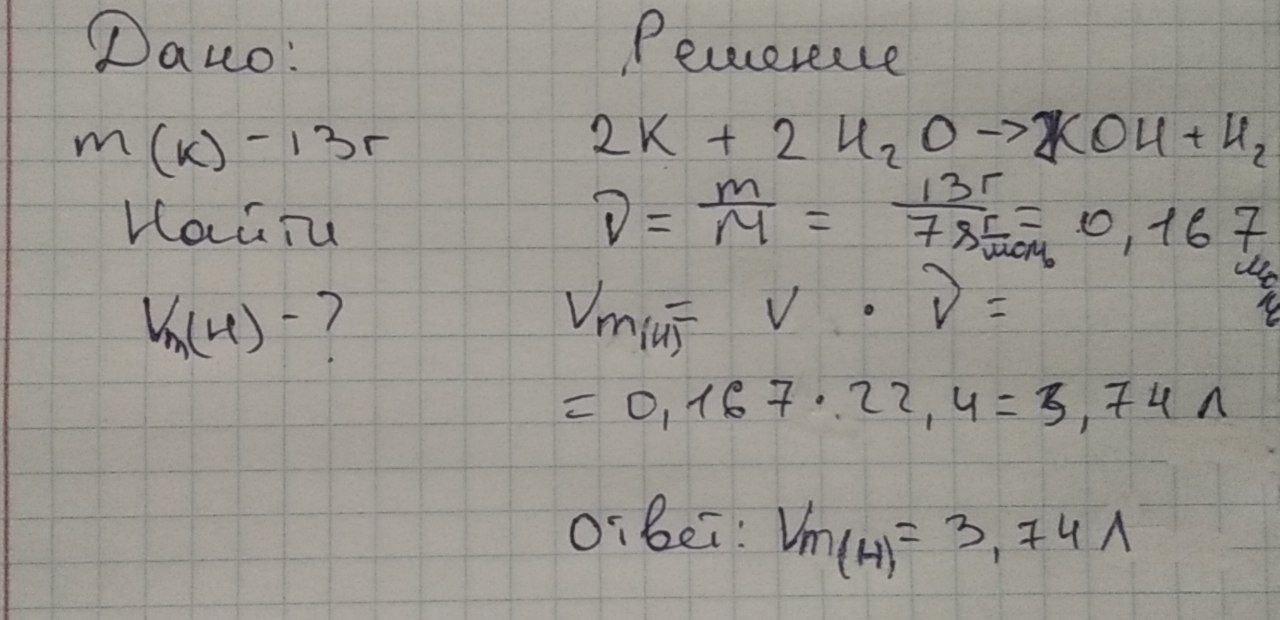 Дано:
m(к) - 13г
Найти
Vm(H) - ?
Решение
2K + 2 H₂O -> 2KOH + H₂
ν = m/M = 13г/78г/моль = 0,167 моль
Vm(H) = V · ν =
= 0,167 · 22,4 = 3,74 л
Ответ: Vm(H) = 3,74 л